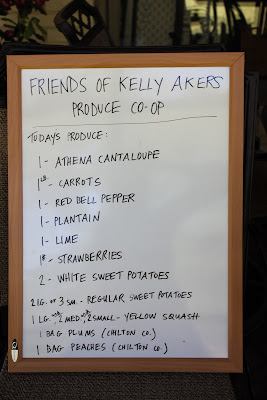 FRIENDS OF KELLY AKERS
PRODUCE CO-OP
TODAYS PRODUCE:
1 - ATHENA CANTALOUPE
1 LB - CARROTS
1 - RED BELL PEPPER
1 - PLANTAIN
1 - LIME
1# - STRAWBERRIES
2 - WHITE SWEET POTATOES
2 LG. OR 3 SM. - REGULAR SWEET POTATOES
1 LG. 2 MED. 2 SMALL - YELLOW SQUASH
1 BAG PLUMS (CHILTON CO.)
1 BAG PEACHES (CHILTON CO.)